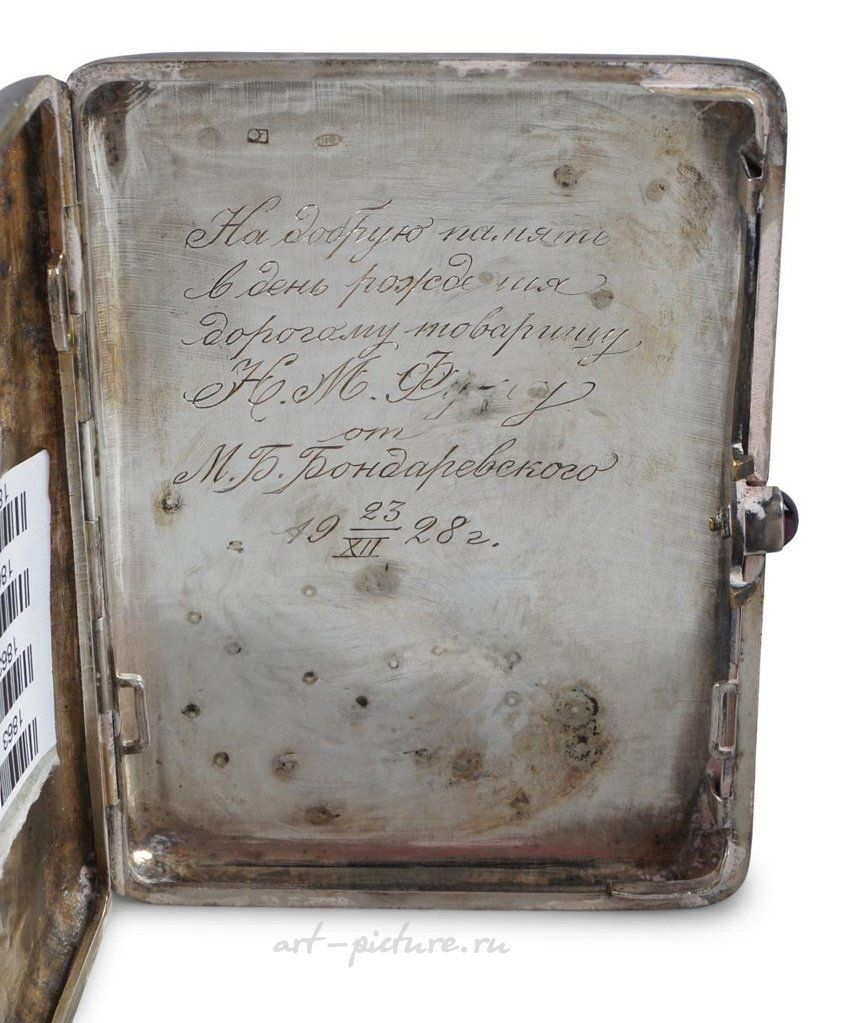 На добрую память
в день рождения
дорогому товарищу
Н. М.
от
М. Б. Бондаревского
19 23/XII 28 г.
1863
art-picture.ru